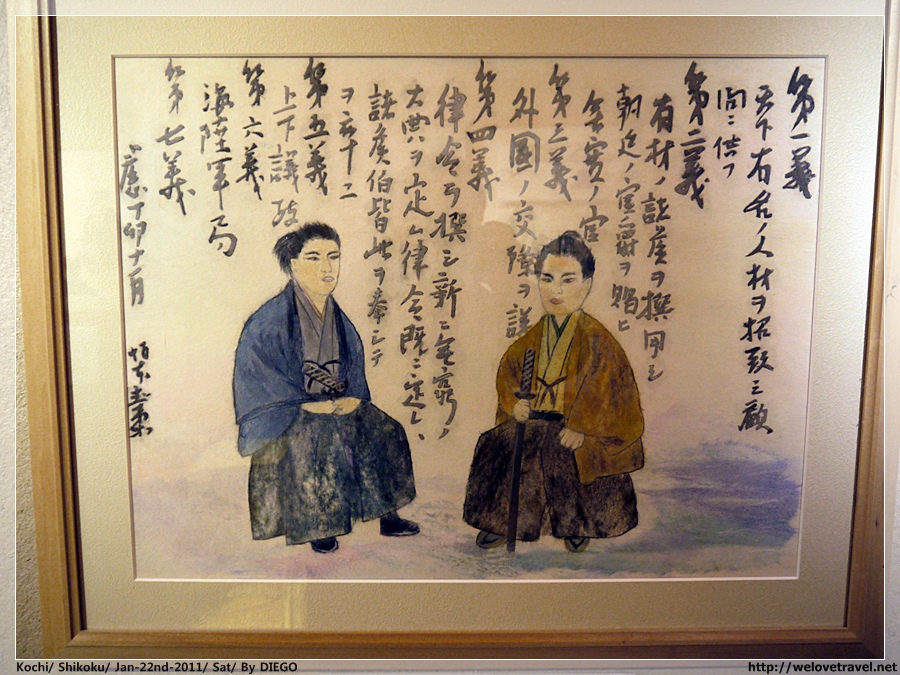 第一義
天下有名ノ人材ヲ招致シ顧
問ニ供フ
第二義
有材ノ諸侯ヲ撰用シ
朝廷ノ官爵ヲ賜ヒ
無実ノ官
第三義
外國ノ交際ヲ議
第四義
律令ヲ撰シ新ニ無窮ノ
大典ヲ定ム律令既ニ定レハ
諸侯伯皆此ヲ奉シテ
第五義
上下議政
第六義
海陸軍局
第七義
丁卯十一月 坂本直柔
Kochi/ Shikoku/ Jan-22nd-2011/ Sat/ By DIEGO
http://welovetravel.net